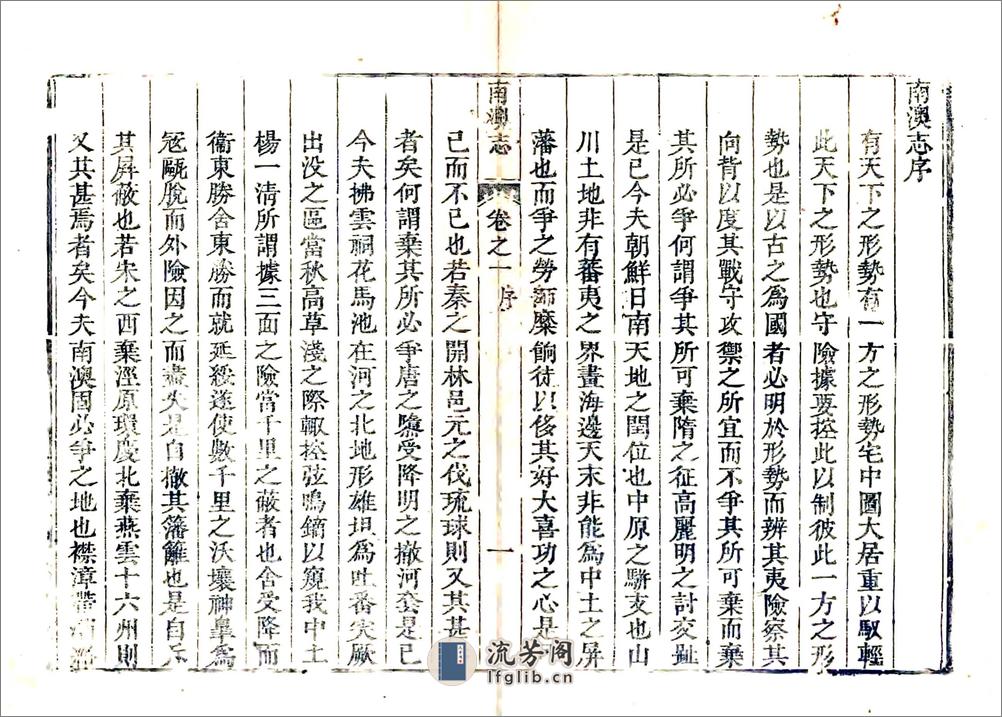 南澳志序
有天下之形勢有一方之形勢宅中圖大居重以馭輕
此天下之形勢也守險據要控此以制彼此一方之形
勢也是以古之為國者必明於形勢而辨其夷險察其
向背以度其戰守攻禦之所宜而不爭其所可棄而棄
其所必爭何謂爭其所可棄隋之征高麗明之討交趾
是已今夫朝鮮日南天地之閏位也中原之駢支也山
川土地非有蕃夷之界畫海邊天末非能為中土之屏
藩也而爭之勞師糜餉徒以侈其好大喜功之心是
南澳志
卷之一 序
一
已而不已也若秦之開林邑元之伐琉球則又其甚
者矣何謂棄其所必爭唐之隳受降明之撤河套是已
今夫拂雲祠花馬池在河之北地形雄坦為吐番突厥
出没之區當秋高草淺之際輙控弦鳴鏑以窺我中土
楊一清所謂據三面之險當千里之蔽者也舍受降而
衞東勝舍東勝而就延綏遂使數千里之沃壤神臯為
寇甌脫而外險因之而盡失是自撤其籓籬也是自
其屏蔽也若宋之西棄涇原環慶北棄燕雲十六州則
又其甚焉者矣今夫南澳固必爭之地也襟漳帶
流芳阁
lfglib.cn